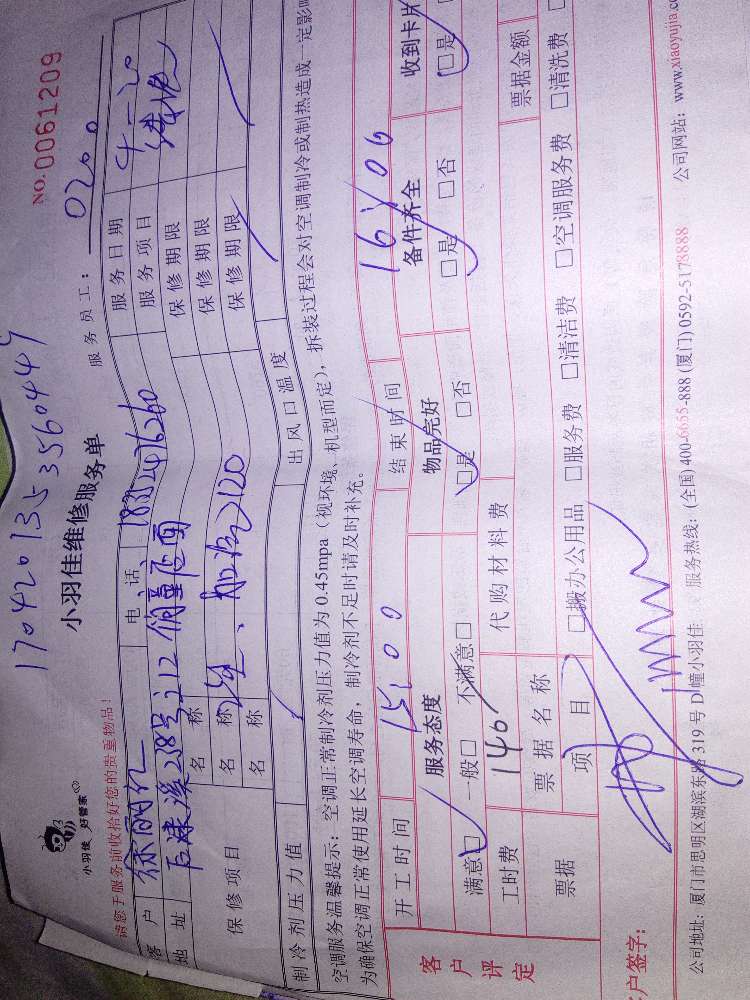 17042013535 60449
小羽佳 好管家
小羽佳维修服务单
NO.0061209
请您于服务前收拾好您的贵重物品！
服务员工：0200
客户 徐丽红 电话 18352476260 服务日期 4-20
地址 后埭溪28号之12 服务项目 清洗
保修项目 名称 保修期限
名称 保修期限
名称 保修期限
制冷剂压力值 出风口温度
空调服务温馨提示：空调正常制冷剂压力值为0.45mpa（视环境、机型而定），拆装过程会对空调制冷或制热造成一定影响
为确保空调正常使用延长空调寿命，制冷剂不足时请及时补充。
客户评定
开工时间 15:00 结束时间 16:00
服务态度 物品完好 备件齐全 收到卡片
满意□ 一般□ 不满意□ □是 □否 □是 □否 □是
工时费 140 代购材料费
票据 票据名称 票据金额
项目 □搬办公用品 □服务费 □清洁费 □空调服务费 □清洗费
客户签字：
公司地址：厦门市思明区湖滨东路319号D幢小羽佳 服务热线：(全国)400-6655-888 (厦门)0592-5178888 公司网站：www.xiaoyujia.c